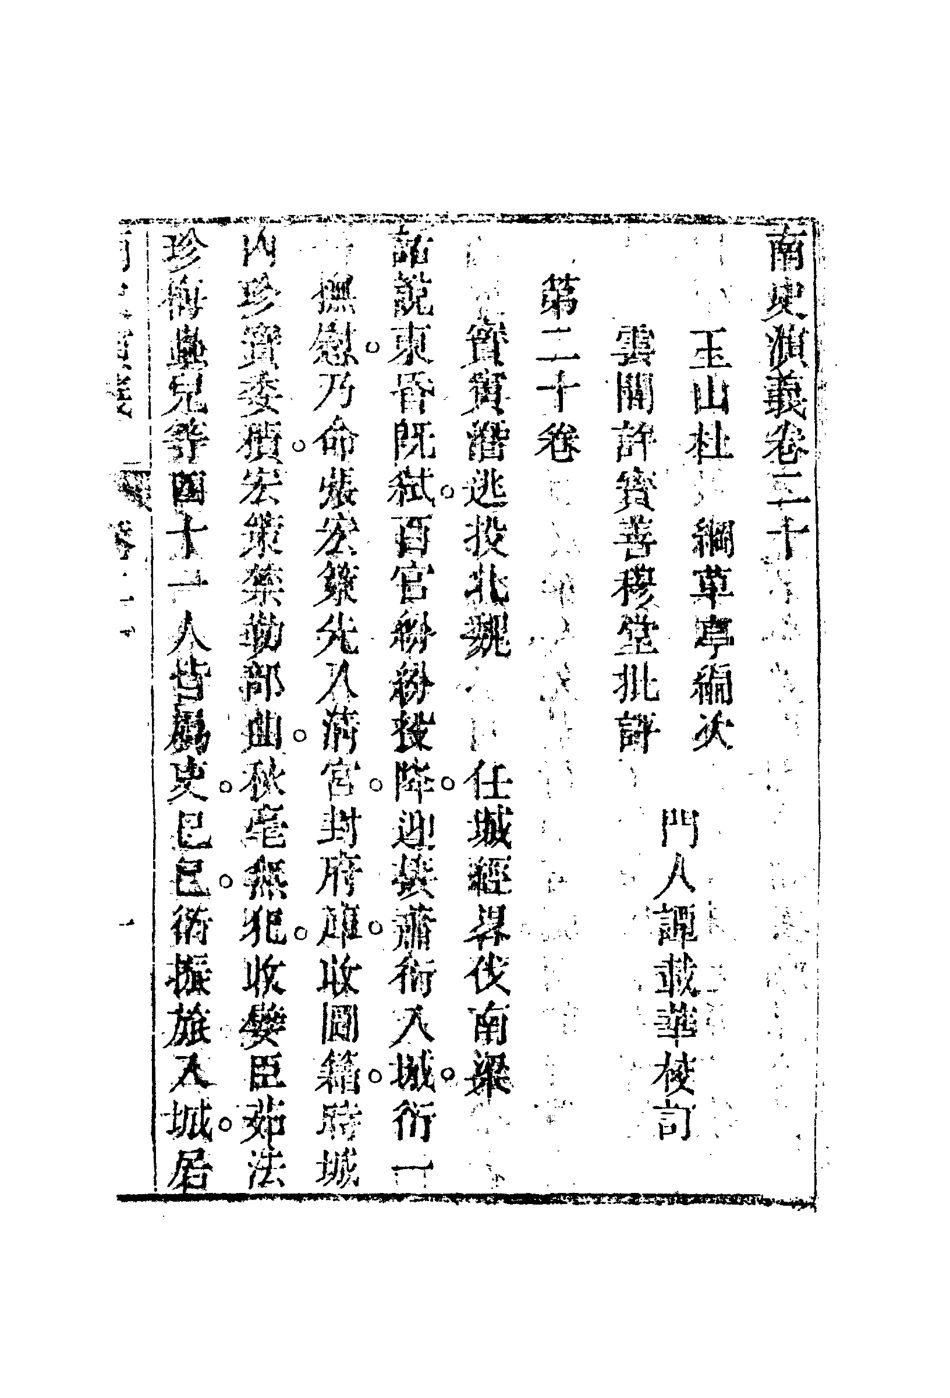 南史演義卷二十
玉山杜綱草亭編次
雲間許寶善穆堂批評
門人譚載華校訂
第二十卷
寶寅潛逃投北魏　任城經畧伐南梁
話說東昏既弑。百官紛紛投降。迎接蕭衍入城。衍一
撫慰。乃命張宏策先入清宮。封府庫。收圖籍。時城
內珍寶委積。宏策禁勒部曲。秋毫無犯。收嬖臣茹法
珍梅蟲兒等四十一人皆屬吏。己巳。衍振旅入城。居
卷二十
一